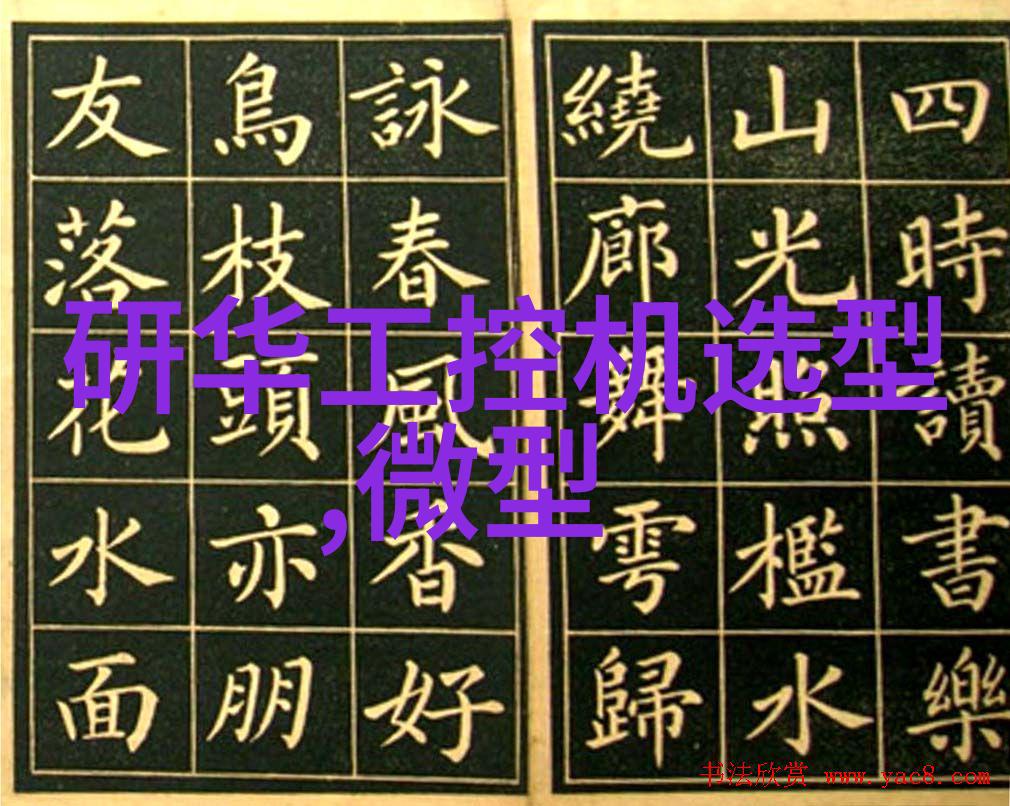 四時讀書樂
山光照檻水
繞廊舞雩歸
詠春風香好
鳥枝頭亦朋
友落花水面
研华工控机选型
,微型
书法欣赏 www.yac8.com